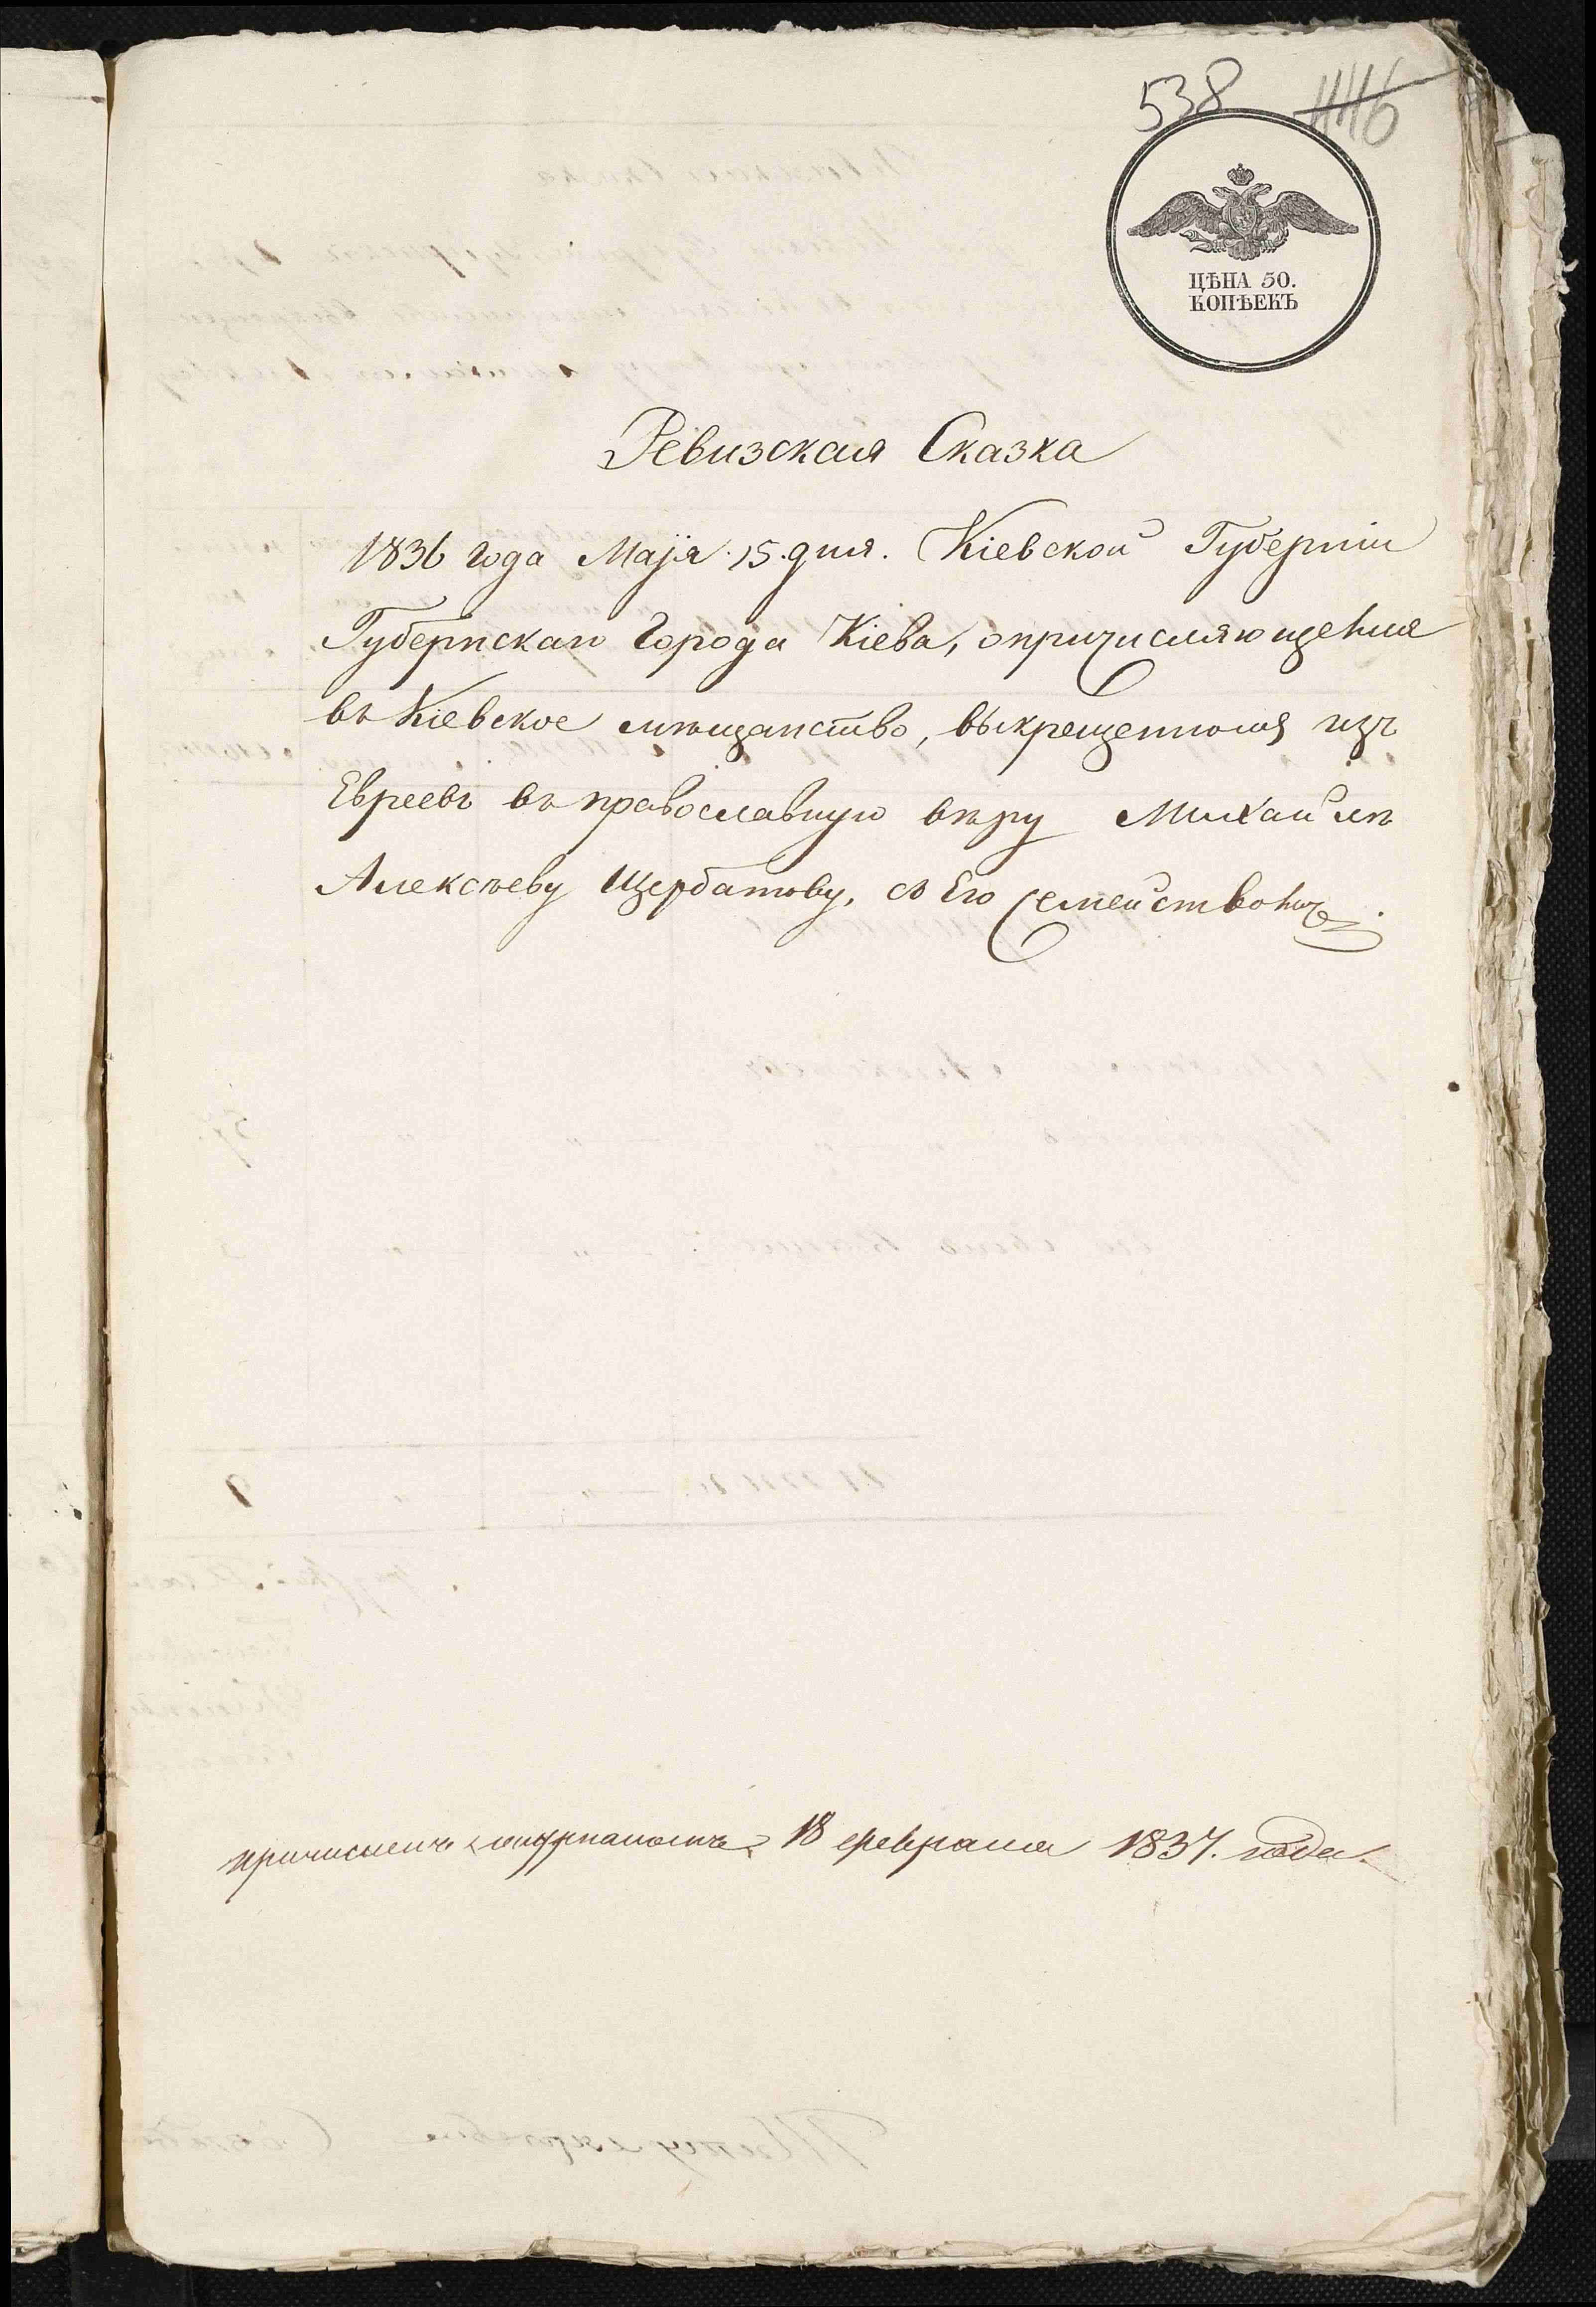 538
1116
ЦѢНА 50.
КОПѢЕКЪ
Ревизская Сказка
1836 года Маія 15. дня. Кіевской Губерніи
Губернскаго Города Кіева, о причисляющемся
въ Кіевское мѣщанство, выкрещенномъ изъ
Евреевъ въ православную вѣру Михайлѣ
Алексѣеву Щербатову, съ Его Семействомъ.
причисленъ 18 февраля 1837. года.